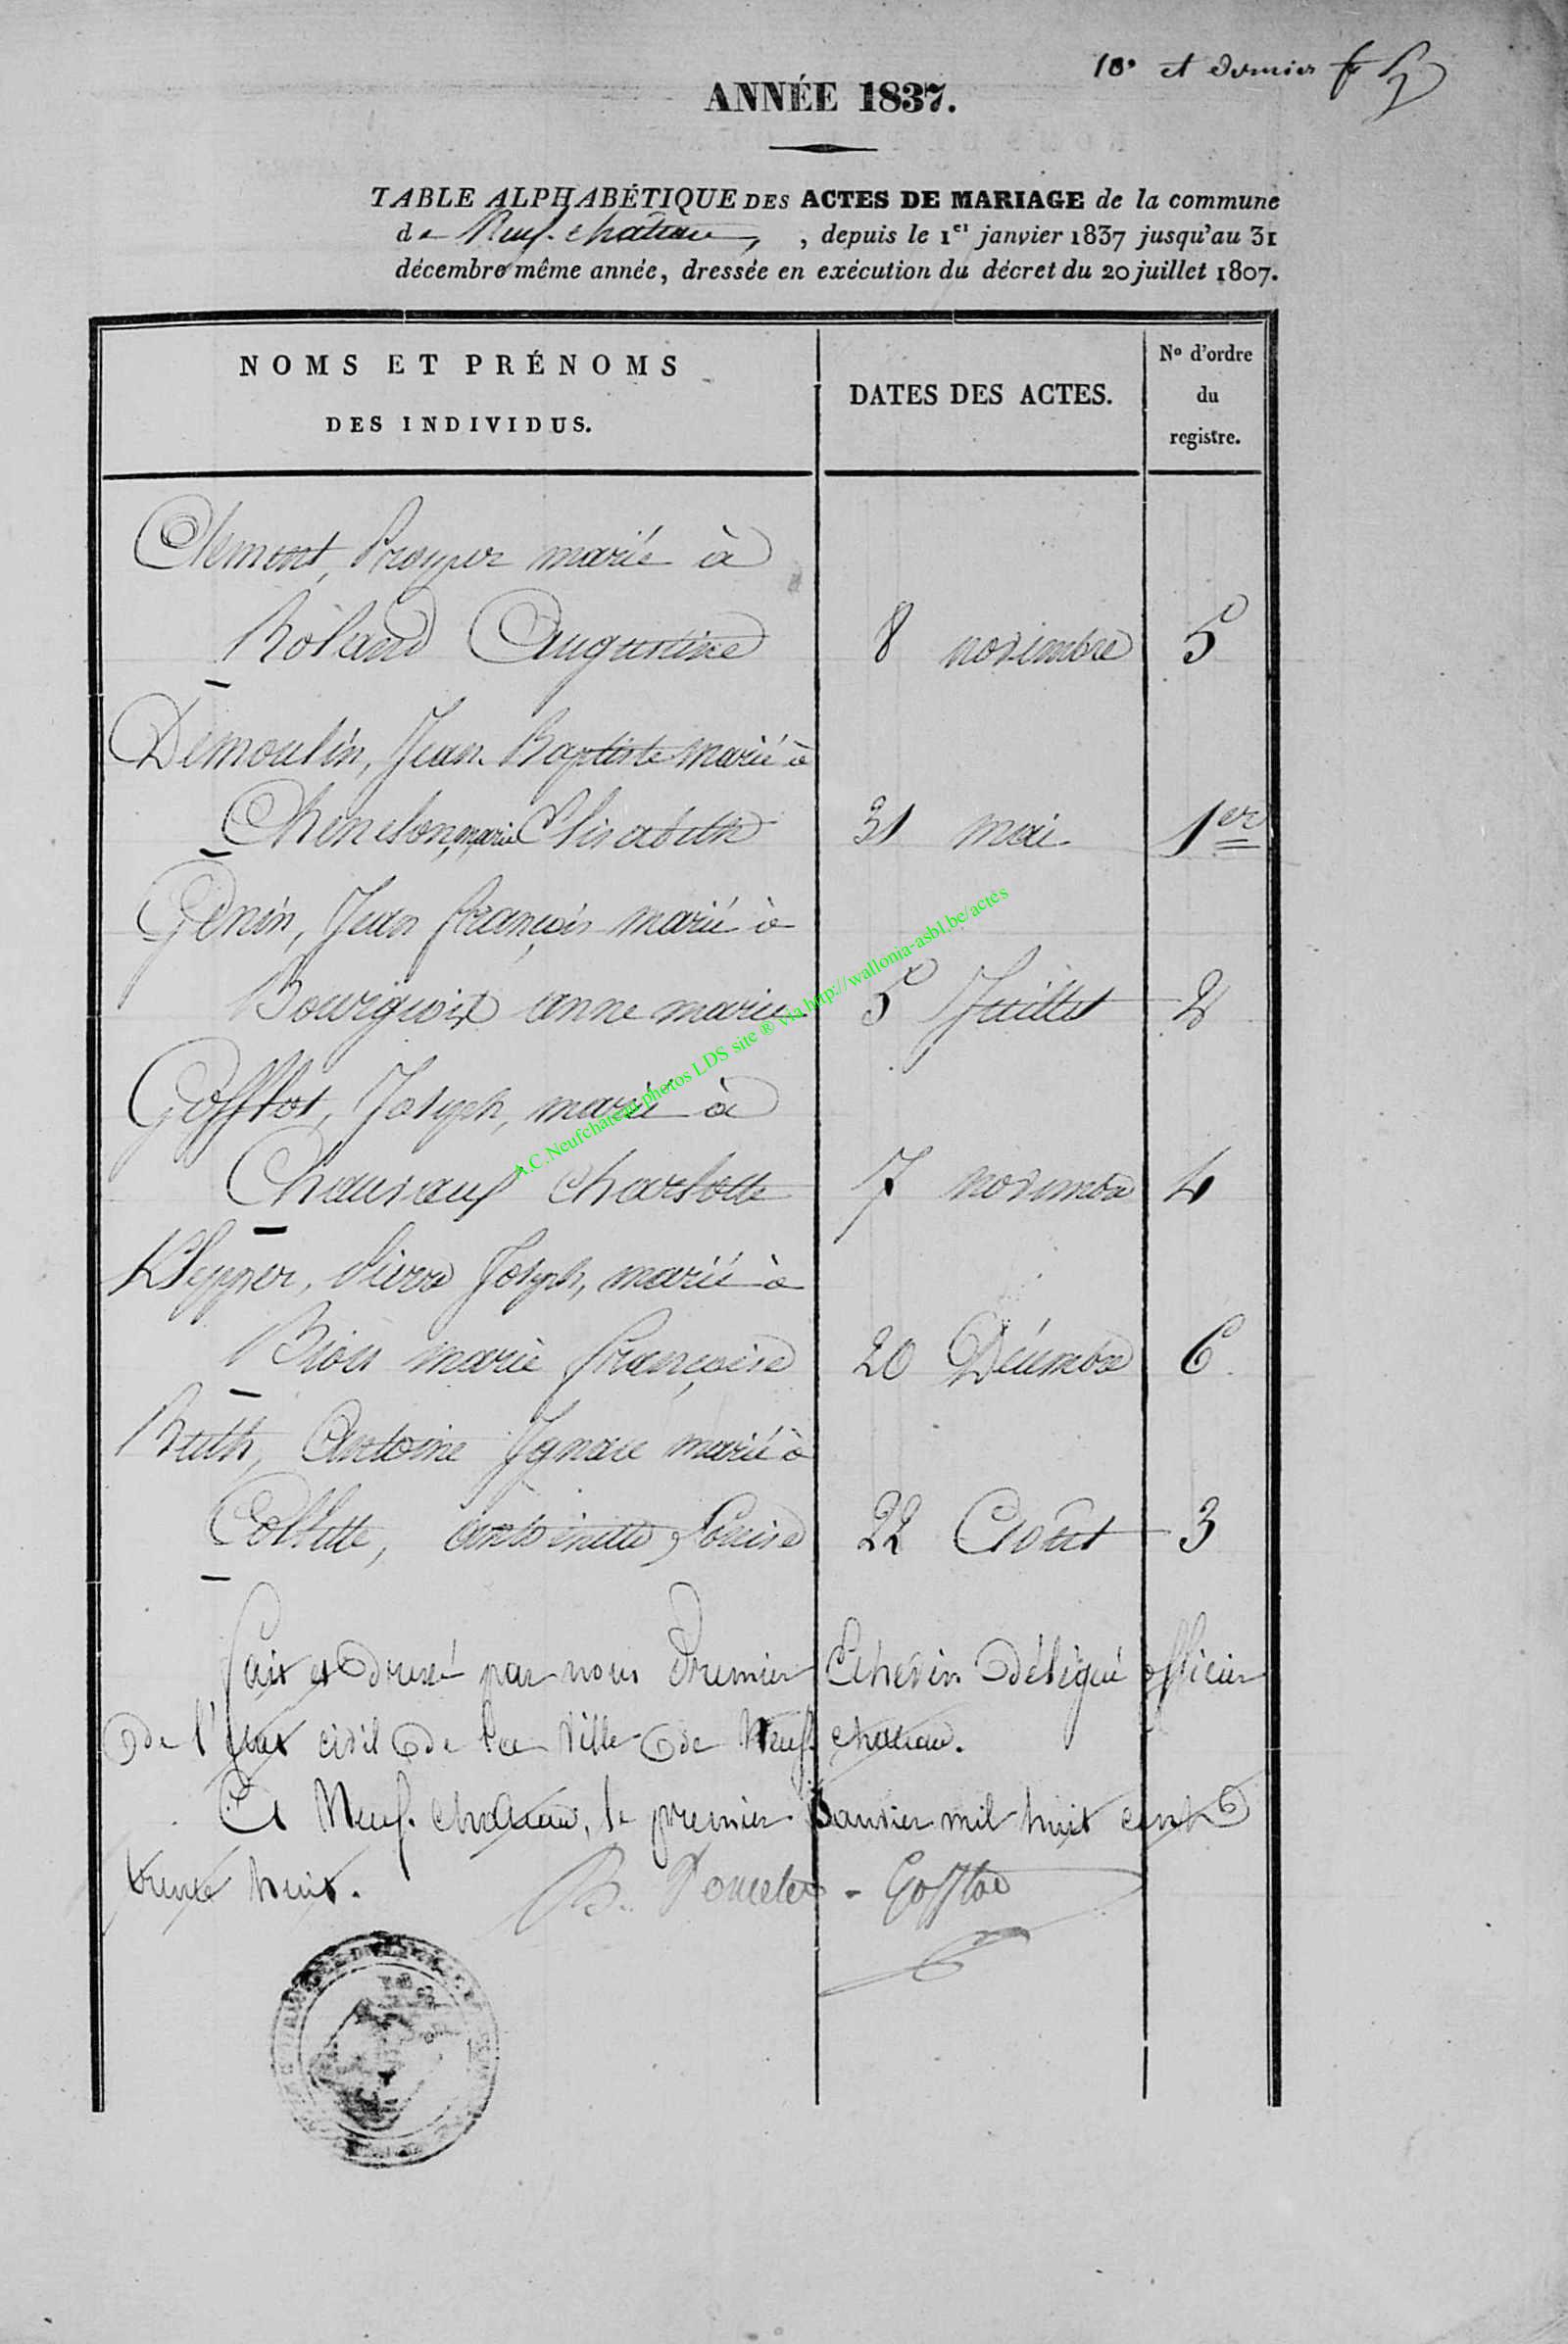 10e et dernier f
ANNÉE 1837.
TABLE ALPHABÉTIQUE DES ACTES DE MARIAGE de la commune
de Neuf-château, , depuis le 1er janvier 1837 jusqu'au 31
décembre même année, dressée en exécution du décret du 20 juillet 1807.
NOMS ET PRÉNOMS
DES INDIVIDUS.
DATES DES ACTES.
No d'ordre
du
registre.
Clément, Prosper marié à
Roland Augustine 8 novembre 5
Demoulin, Jean Baptiste marié à
Chenelon, marie Elisabeth 31 mai 1er
Génin, Jean françois marié à
Bourgwix anne marie 5 Juillet 2
Gofflot, Joseph, marié à
Chauvauf Charlotte 7 novembre 4
Klepper, Pierre Joseph, marié à
Brion marie françoise 20 Décembre 6
Ruth, Antoine Ignace marié à
Collette, antoinette, Louise 22 Août 3
Fait et dressé par nous Premier Echevin délégué officier
de l'état civil de la Ville de Neuf-château.
A Neuf-château, le premier Janvier mil huit cent
trente huit. B. Poncelet - Gofflot
A.C.Neufchâteau photos LDS site ® via http://wallonia-asbl.be/actes